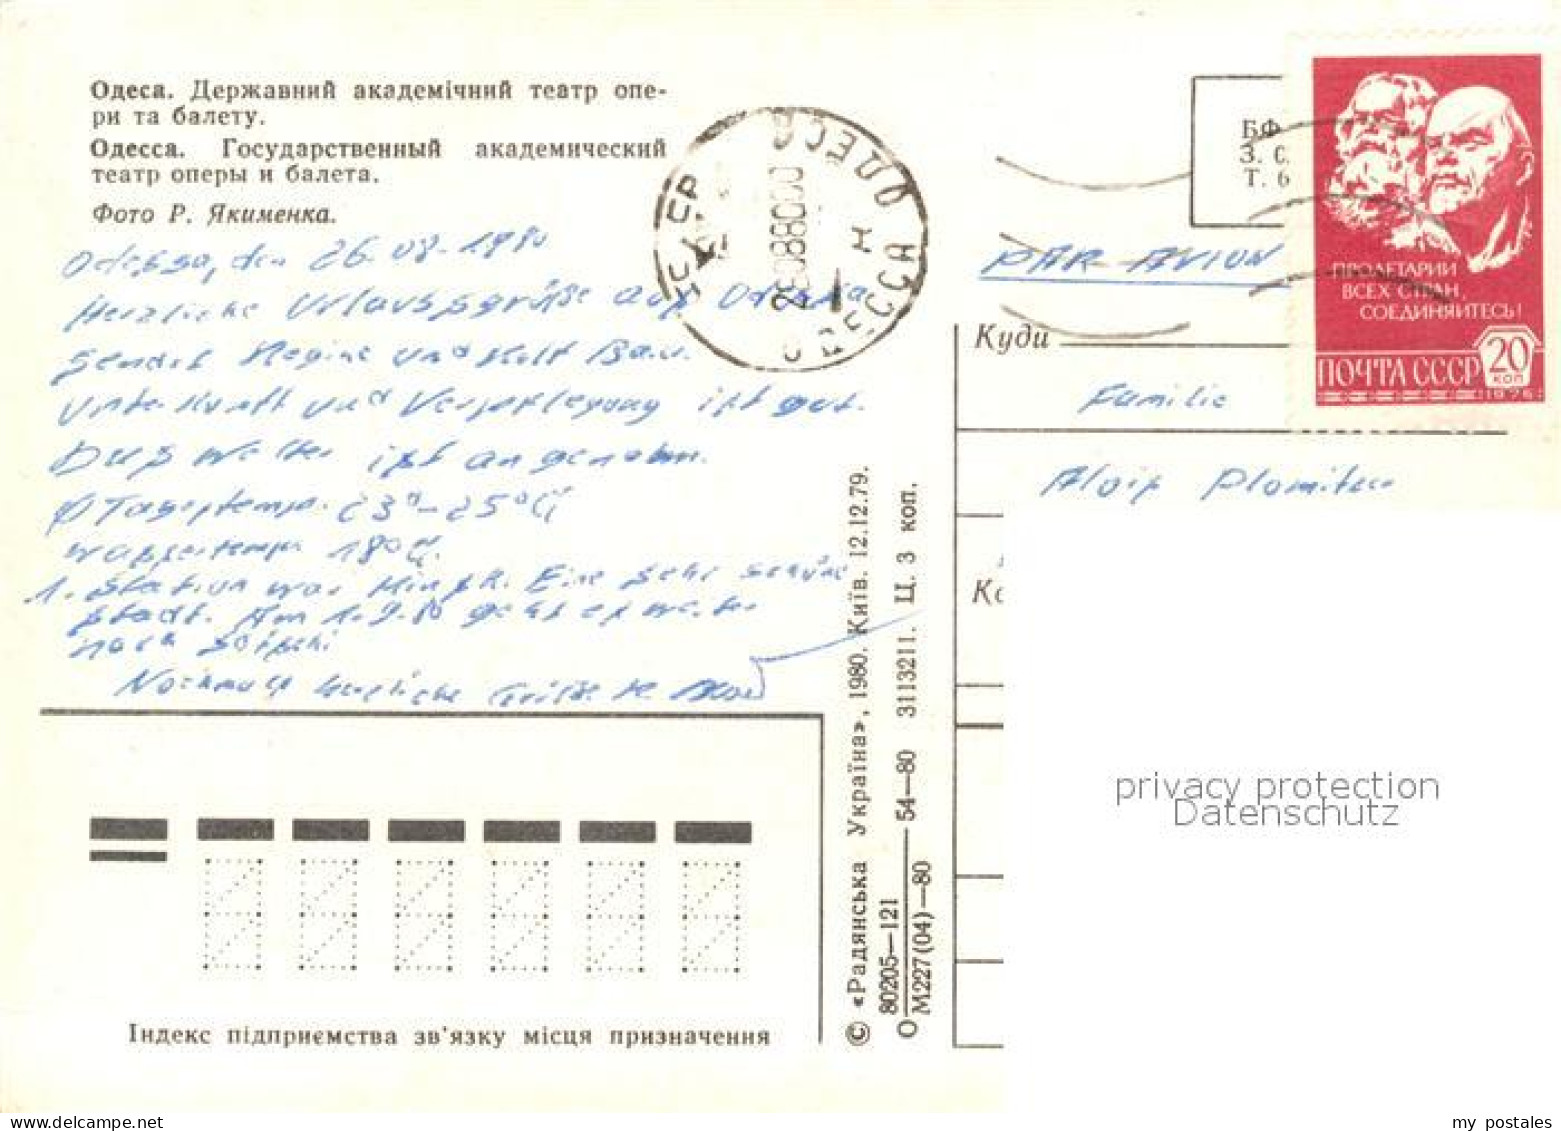 Одеса. Державний академічний театр опе-
ри та балету.
Одесса. Государственный академический
театр оперы и балета.
Фото Р. Якименка.
Odessa, den 26.08.1980
Herzliche Urlaubsgrüße aus Odessa
sendet Regine und Rolf
Unterkunft und Verpflegung ist gut.
Das Wetter ist angenehm.
Ø Tagestemp. 23°-25°C
Wassertemp. 18°C.
1. Station war Minsk. Eine sehr schöne
Stadt. Am 1.9.80 geht es weiter
nach Sotschi
Nochmals herzliche Grüße
Індекс підприємства зв'язку місця призначення
© «Радянська Україна», 1980. Київ. 12.12.79.
О 80205—121 54—80 3113211. Ц. 3 коп.
М227(04)—80
ОДЕССА
БФ
З. С.
Т. 6
PAR AVION
ПРОЛЕТАРИИ
ВСЕХ СТРАН,
СОЕДИНЯЙТЕСЬ!
ПОЧТА СССР 20 КОП
1976
Куди
Familie
Alois
privacy protection
Datenschutz
my postales